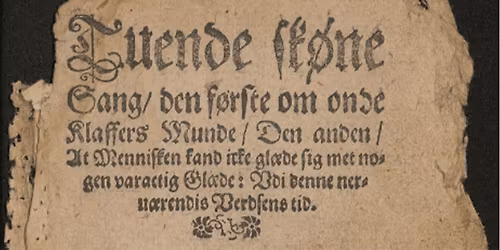 Tuende skøne
Sang/ den første om onde
Klaffers Munde/ Den anden/
At Mennisken kand icke glæde sig met no-
gen varactig Glæde: Vdi denne ner-
uærendis Verdsens tid.